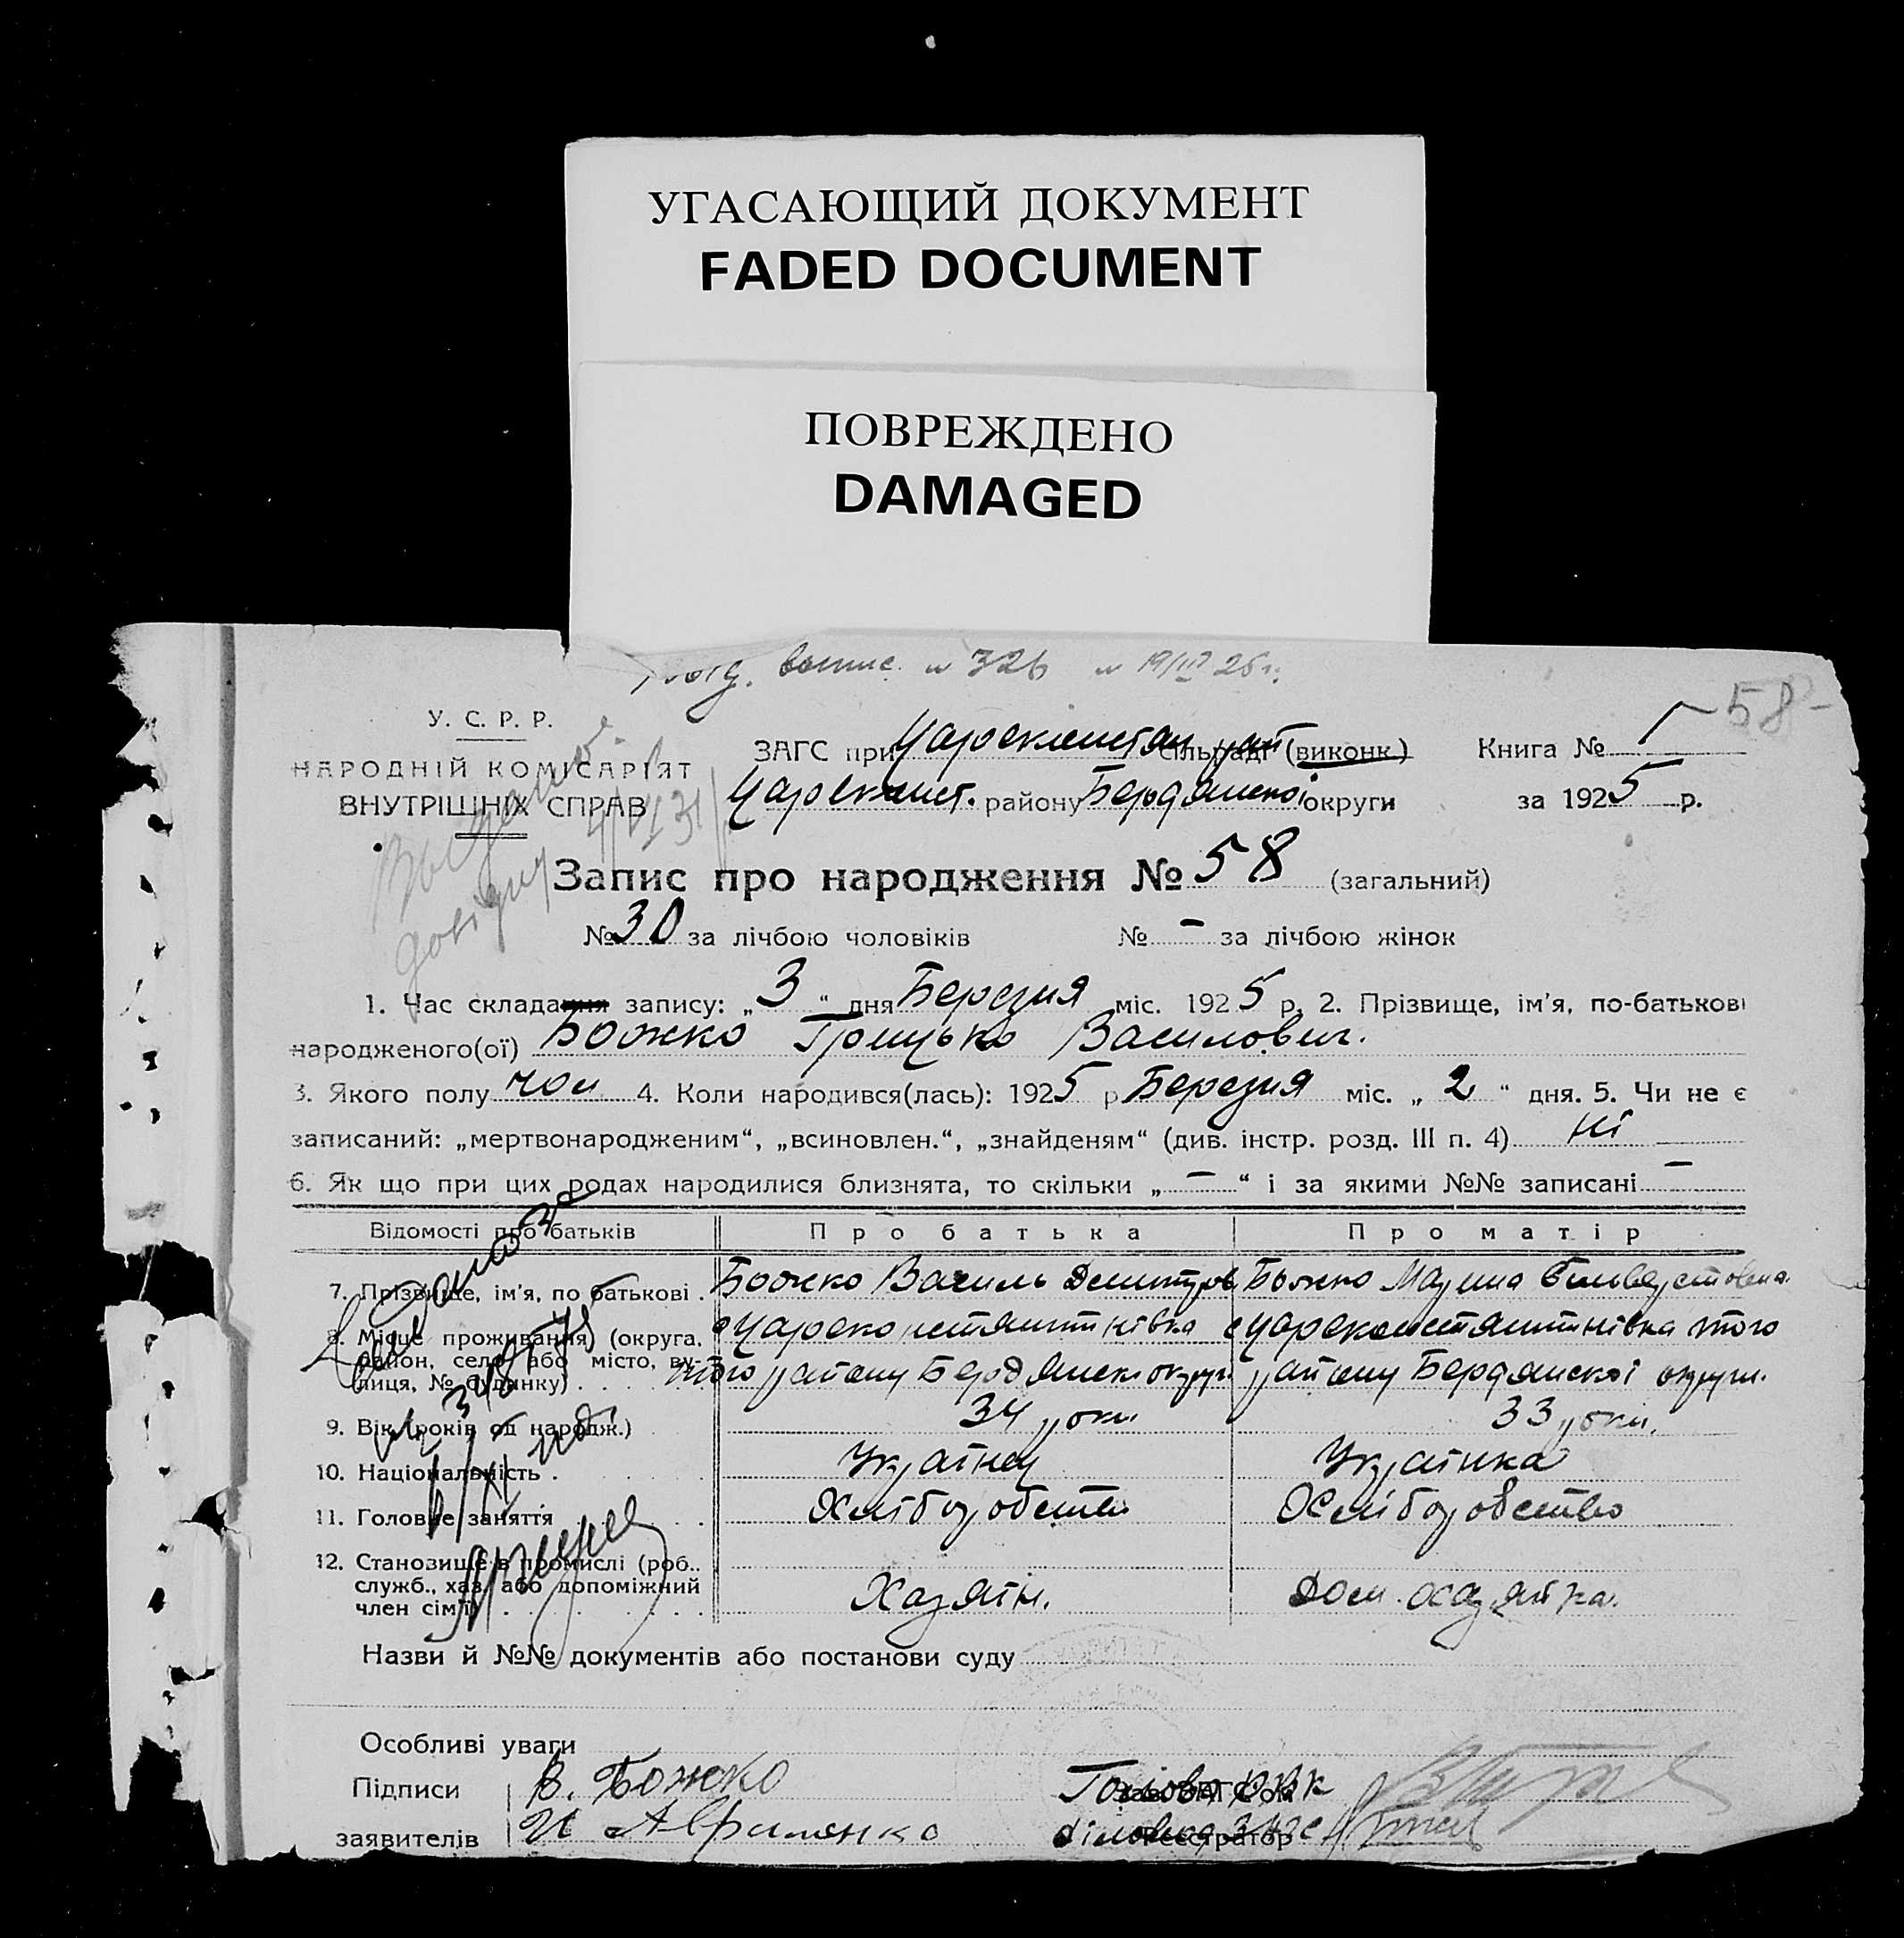 УГАСАЮЩИЙ ДОКУМЕНТ
FADED DOCUMENT
ПОВРЕЖДЕНО
DAMAGED
випис. № 326 19/III 25 г.
58
У. С. Р. Р.
НАРОДНІЙ КОМІСАРІЯТ
ВНУТРІШНІХ СПРАВ
ЗАГС при Царекпистан рай сільраді (виконк.) Книга № 1
району Бердянскоі округи за 1925 р.
Запис про народження № 58 (загальний)
№ 30 за лічбою чоловіків № – за лічбою жінок
1. Час складання запису: „ 3 “ дня Березня міс. 1925 р. 2. Прізвище, ім’я, по-батькові
народженого(ої) Божко Грицько Василович.
3. Якого полу чол 4. Коли народився(лась): 1925 р Березня міс. „ 2 “ дня. 5. Чи не є
записаний: „мертвонародженим“, „всиновлен.“, „знайденям“ (див. інстр. розд. III п. 4) ні
6. Як що при цих родах народилися близнята, то скільки „ – “ і за якими №№ записані –
Відомості про батьків Про батька Про матір
7. Прізвище, ім’я, по батькові . Божко Василь Дмитров Божко Марина
8. Місце проживання (округа, с Царекостянтнівка с Царекостянтнівка того
район, село або місто, ву- того району Бердянск округи району Бердянскоі округи.
лиця, № будинку)
9. Вік (років од народж.) 34 роки 33 роки.
10. Національність . Українец Українка
11. Головне заняття Хліборобство Хліборобство
12. Становище в промислі (роб.,
служб., хаз. або допоміжний Хазяїн. Дом. хазяйка.
член сім’ї)
Назви й №№ документів або постанови суду
Особливі уваги
Підписи В. Божко Голова РВК
заявителів И Авраменко Реєстратор